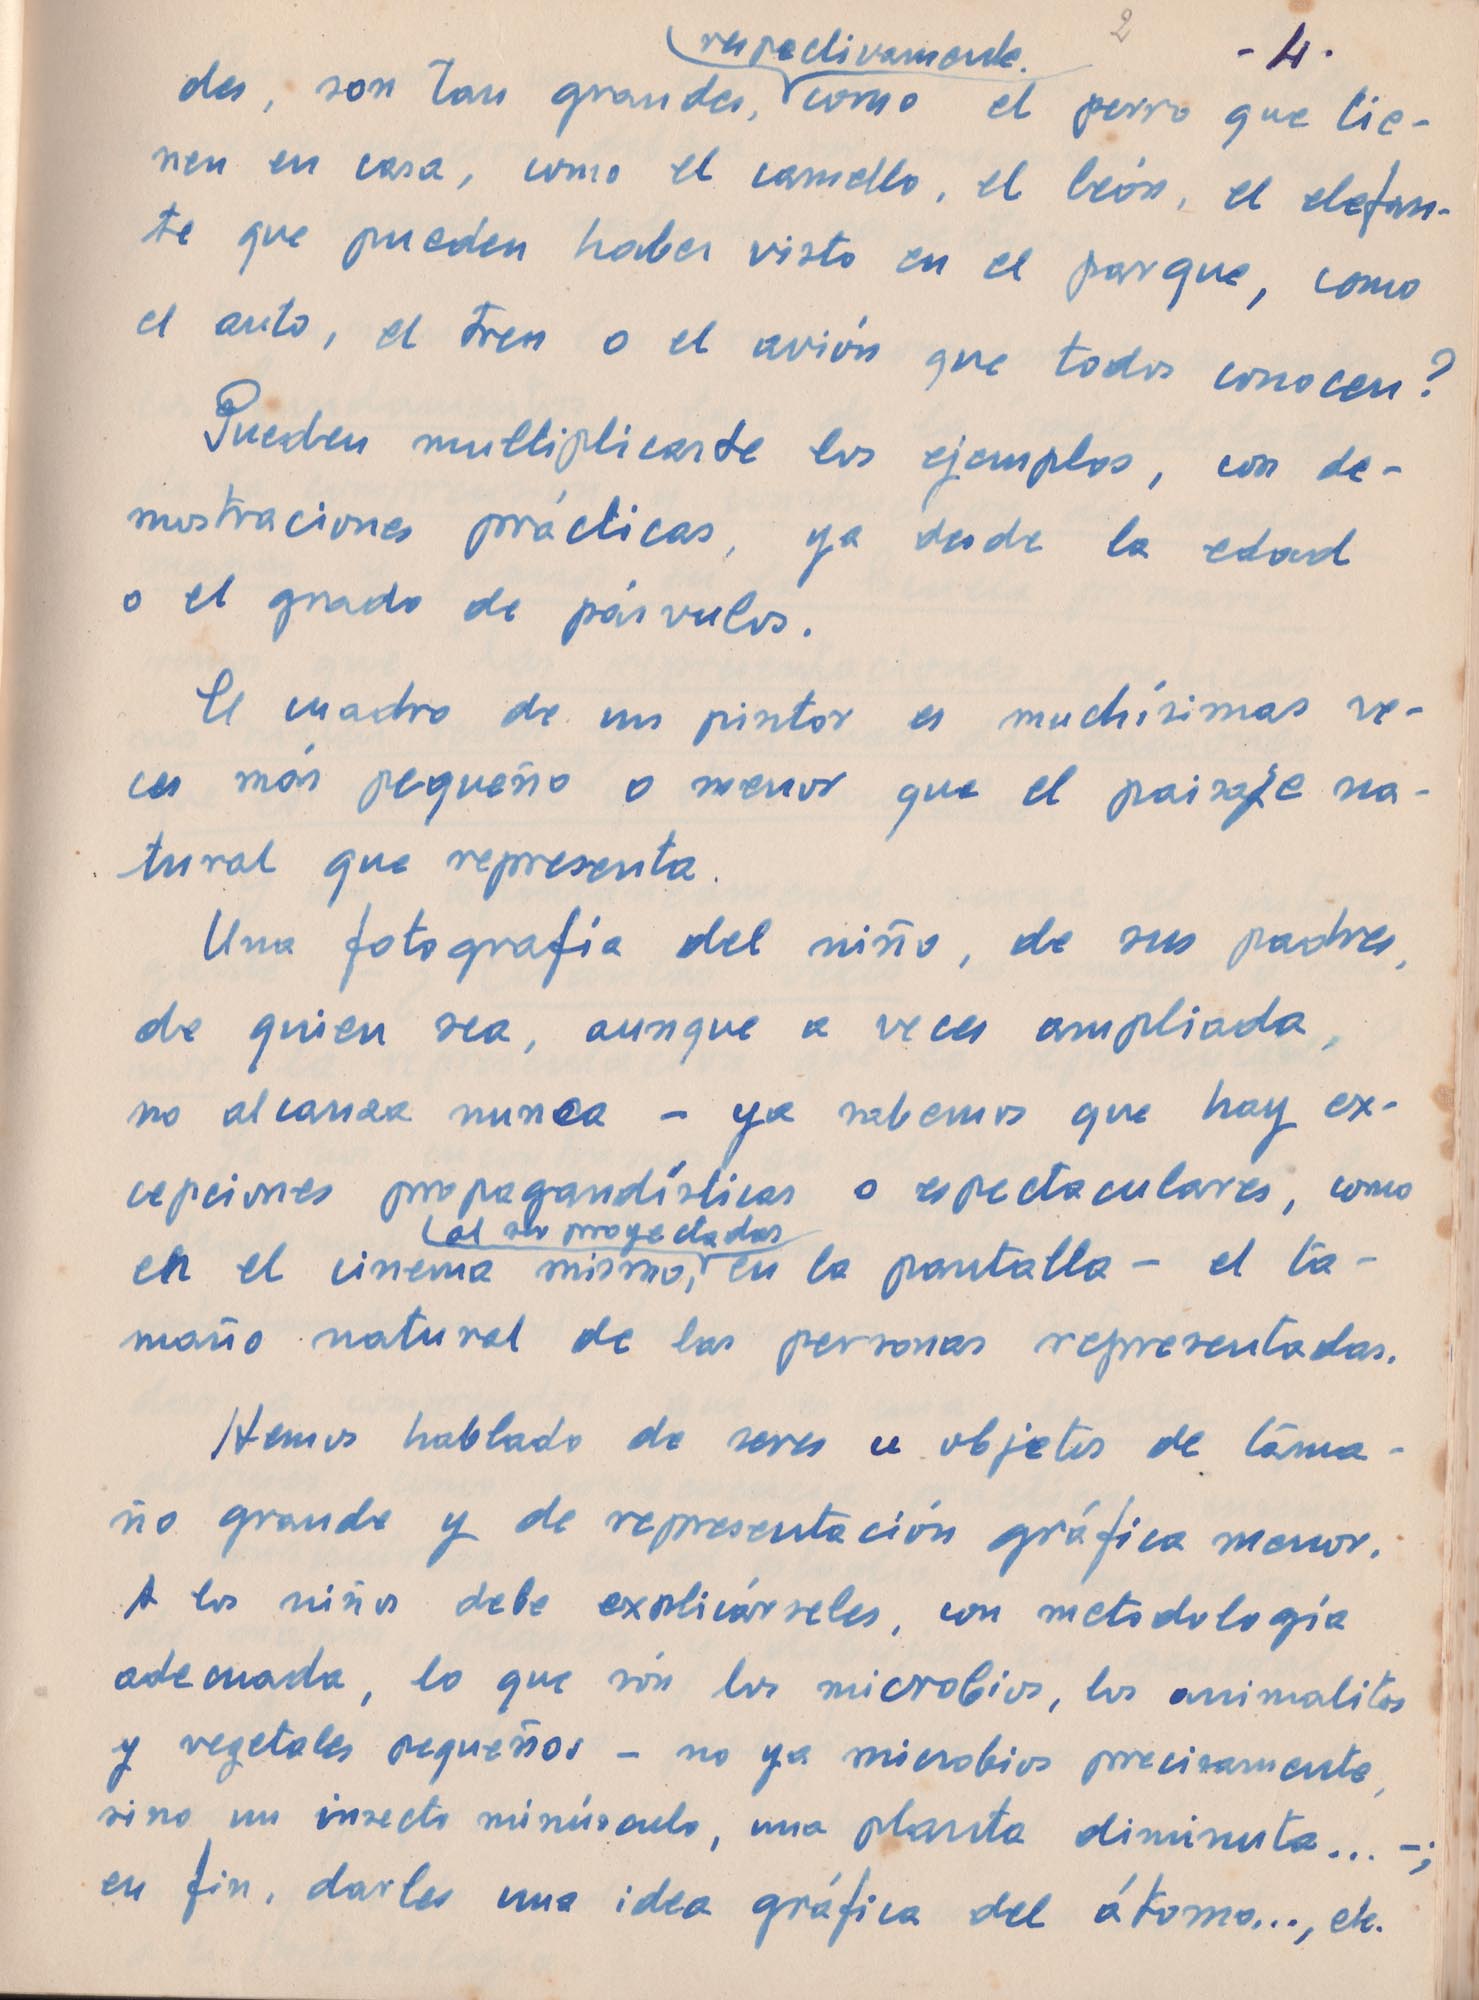 2
- 4 -
respectivamente.
des, son tan grandes, como el perro que tie-
nen en casa, como el camello, el león, el elefan-
te que pueden haber visto en el parque, como
el auto, el tren o el avión que todos conocen?
Pueden multiplicarse los ejemplos, con de-
mostraciones prácticas, ya desde la edad
o el grado de párvulos.
El cuadro de un pintor es muchísimas ve-
ces más pequeño o menor que el paisaje na-
tural que representa.
Una fotografía del niño, de sus padres,
de quien sea, aunque a veces ampliada,
no alcanza nunca - ya sabemos que hay ex-
cepciones propagandísticas o espectaculares, como
al ser proyectadas
en el cinema mismo, en la pantalla - el ta-
maño natural de las personas representadas.
Hemos hablado de seres u objetos de tama-
ño grande y de representación gráfica menor.
A los niños debe explicárseles, con metodología
adecuada, lo que són los microbios, los animalitos
y vegetales pequeños - no ya microbios precisamente,
sino un insecto minúsculo, una planta diminuta... -;
en fin, darles una idea gráfica del átomo..., etc.